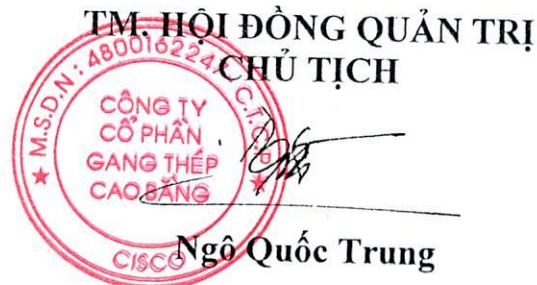 TM. HỘI ĐỒNG QUẢN TRỊ
CHỦ TỊCH
M.S.D.N: 4800162247 C.T.C.P
CÔNG TY
CỔ PHẦN
GANG THÉP
CAO BẰNG
CISCO
Ngô Quốc Trung